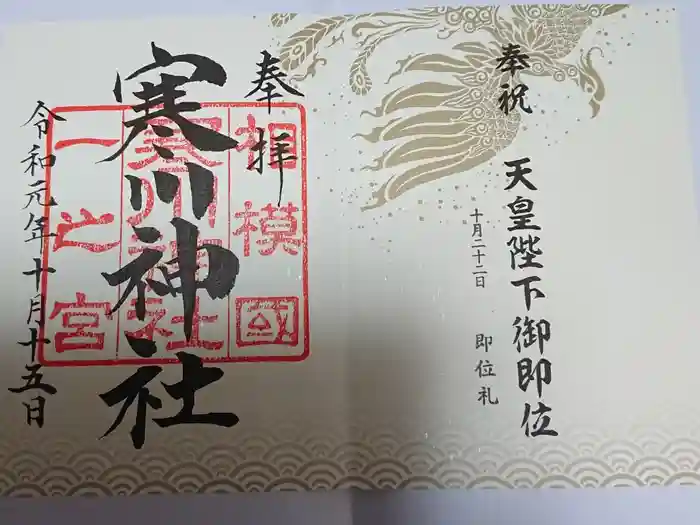 奉祝
天皇陛下御即位
十月二十二日 即位礼
奉拝
寒川神社
相模國
寒川神社
一之宮
令和元年十月十五日